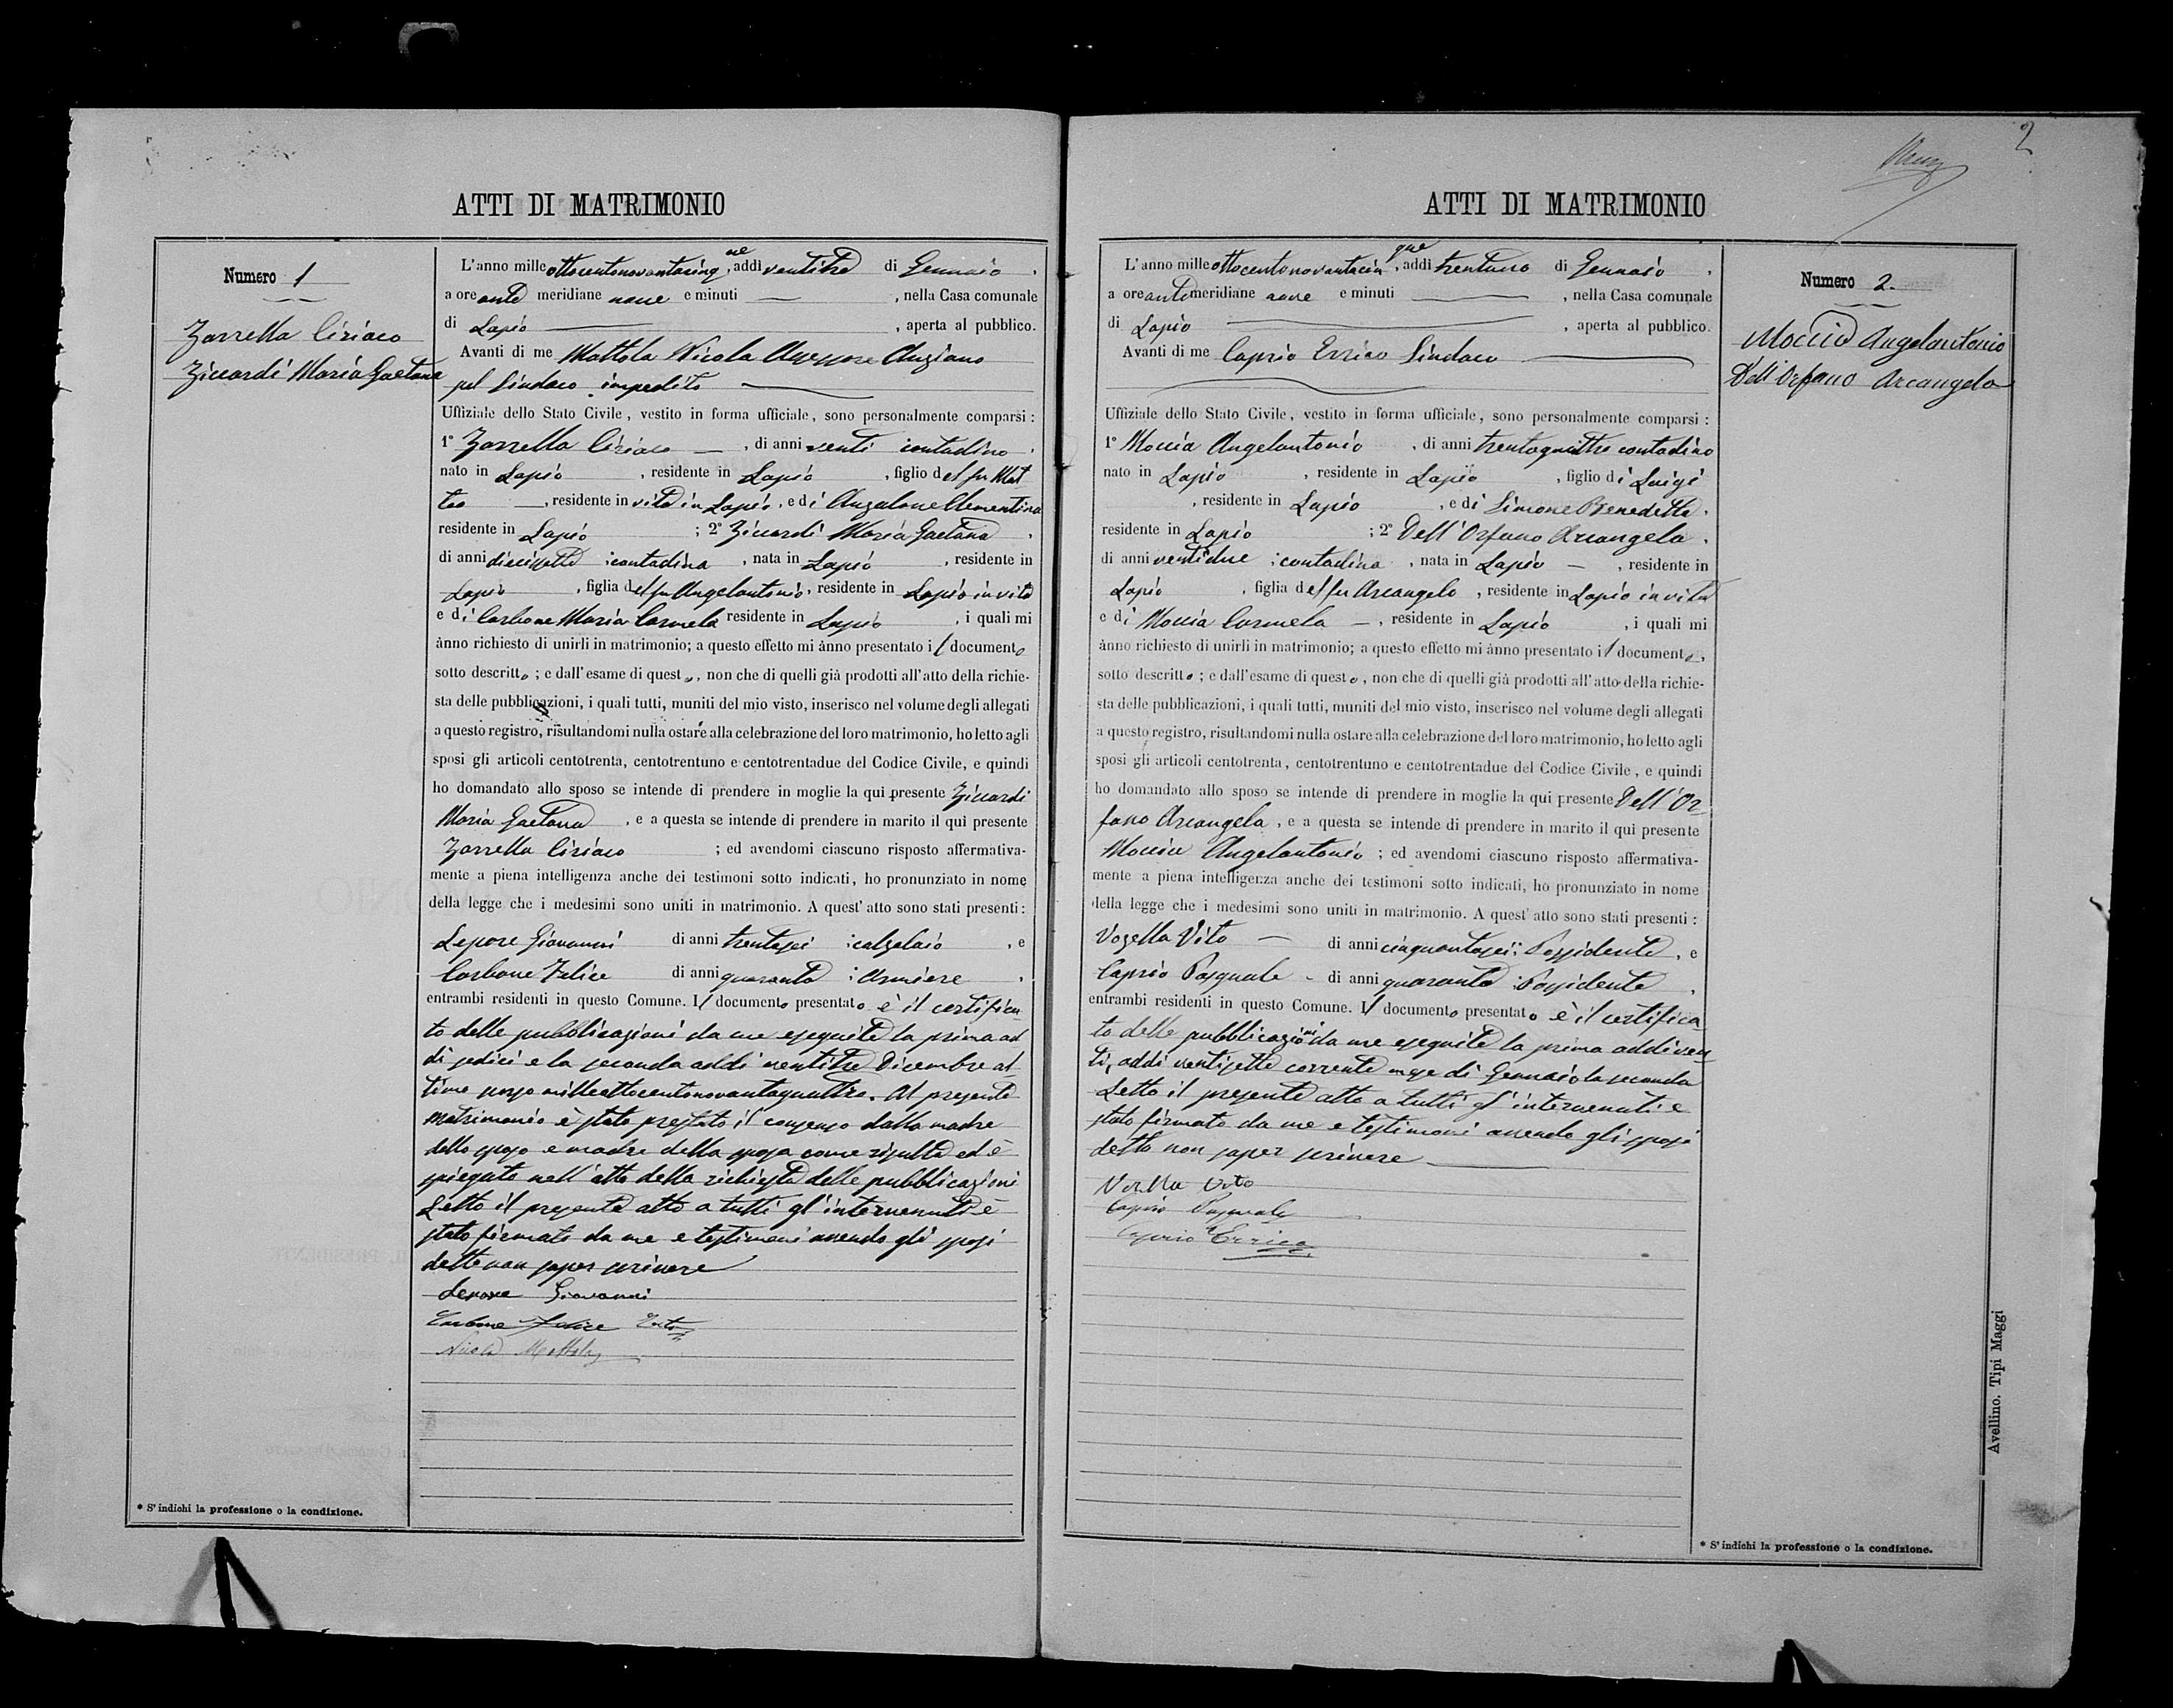 ATTI DI MATRIMONIO
Numero 1
Zarrella Ciriaco
Ziccardi Maria Gaetana
L'anno mille ottocentonovantacinque, addì ventitre di Gennaio,
a ore anti meridiane nove e minuti —, nella Casa comunale
di Lapio —, aperta al pubblico.
Avanti di me Mottola Nicola Assessore Anziano
pel Sindaco impedito —
Uffiziale dello Stato Civile, vestito in forma ufficiale, sono personalmente comparsi:
1° Zarrella Ciriaco —, di anni venti contadino,
nato in Lapio, residente in Lapio, figlio del fu Mat
teo —, residente in vita in Lapio, e di Anzalone Clementina
residente in Lapio; 2° Ziccardi Maria Gaetana,
di anni diecisette; contadina, nata in Lapio, residente in
Lapio, figlia del fu Angelantonio, residente in Lapio in vita
e di Carbone Maria Carmela residente in Lapio, i quali mi
ànno richiesto di unirli in matrimonio; a questo effetto mi ànno presentato il documento
sotto descritto; e dall'esame di questo, non che di quelli già prodotti all'atto della richie-
sta delle pubblicazioni, i quali tutti, muniti del mio visto, inserisco nel volume degli allegati
a questo registro, risultandomi nulla ostare alla celebrazione del loro matrimonio, ho letto agli
sposi gli articoli centotrenta, centotrentuno e centotrentadue del Codice Civile, e quindi
ho domandato allo sposo se intende di prendere in moglie la qui presente Ziccardi
Maria Gaetana, e a questa se intende di prendere in marito il qui presente
Zarrella Ciriaco; ed avendomi ciascuno risposto affermativa-
mente a piena intelligenza anche dei testimoni sotto indicati, ho pronunziato in nome
della legge che i medesimi sono uniti in matrimonio. A quest'atto sono stati presenti:
Lepore Giovanni di anni trentasei; calzolaio, e
Carbone Felice di anni quaranta; Armiere,
entrambi residenti in questo Comune. Il documento presentato è il certifica
to delle pubblicazioni da me eseguite la prima ad
di sedici e la seconda addi ventitre Dicembre ul
timo scorso milleottocentonovantaquattro. Al presente
matrimonio è stato prestato il consenso dalla madre
dello sposo e madre della sposa come risulta ed è
spiegato nell'atto della richiesta delle pubblicazioni
Letto il presente atto a tutti gl'intervenuti è
stato firmato da me e testimoni avendo gli sposi
detto non saper scrivere
Lepore Giovanni
Carbone Felice
Nicola Mottola
* S'indichi la professione o la condizione.
2
ATTI DI MATRIMONIO
Numero 2.
Moccia Angelantonio
Dell'Orfano Arcangela
L'anno mille ottocentonovantacinque, addì trentuno di Gennaio,
a ore anti meridiane nove e minuti —, nella Casa comunale
di Lapio —, aperta al pubblico.
Avanti di me Caprio Errico Sindaco —
Uffiziale dello Stato Civile, vestito in forma ufficiale, sono personalmente comparsi:
1° Moccia Angelantonio, di anni trentaquattro contadino
nato in Lapio, residente in Lapio, figlio di Luigi
, residente in Lapio, e di Simone Benedetta,
residente in Lapio; 2° Dell'Orfano Arcangela,
di anni ventidue; contadina, nata in Lapio —, residente in
Lapio, figlia del fu Arcangelo, residente in Lapio in vita
e di Moccia Carmela —, residente in Lapio, i quali mi
ànno richiesto di unirli in matrimonio; a questo effetto mi ànno presentato il documento,
sotto descritto; e dall'esame di questo, non che di quelli già prodotti all'atto della richie-
sta delle pubblicazioni, i quali tutti, muniti del mio visto, inserisco nel volume degli allegati
a questo registro, risultandomi nulla ostare alla celebrazione del loro matrimonio, ho letto agli
sposi gli articoli centotrenta, centotrentuno e centotrentadue del Codice Civile, e quindi
ho domandato allo sposo se intende di prendere in moglie la qui presente Dell'Or
fano Arcangela, e a questa se intende di prendere in marito il qui presente
Moccia Angelantonio; ed avendomi ciascuno risposto affermativa-
mente a piena intelligenza anche dei testimoni sotto indicati, ho pronunziato in nome
della legge che i medesimi sono uniti in matrimonio. A quest'atto sono stati presenti:
Vozella Vito — di anni cinquantasei; Possidente, e
Caprio Pasquale - di anni quaranta; Possidente,
entrambi residenti in questo Comune. Il documento presentato è il certifica
to delle pubblicazioni da me eseguite la prima addi ven
ti, addi ventisette corrente mese di Gennaio la seconda
Letto il presente atto a tutti gl'intervenuti è
stato firmato da me e testimoni avendo gli sposi
detto non saper scrivere —
Vozella Vito
Caprio Pasquale
Caprio Errico
* S'indichi la professione o la condizione.
Avellino. Tipi Maggi